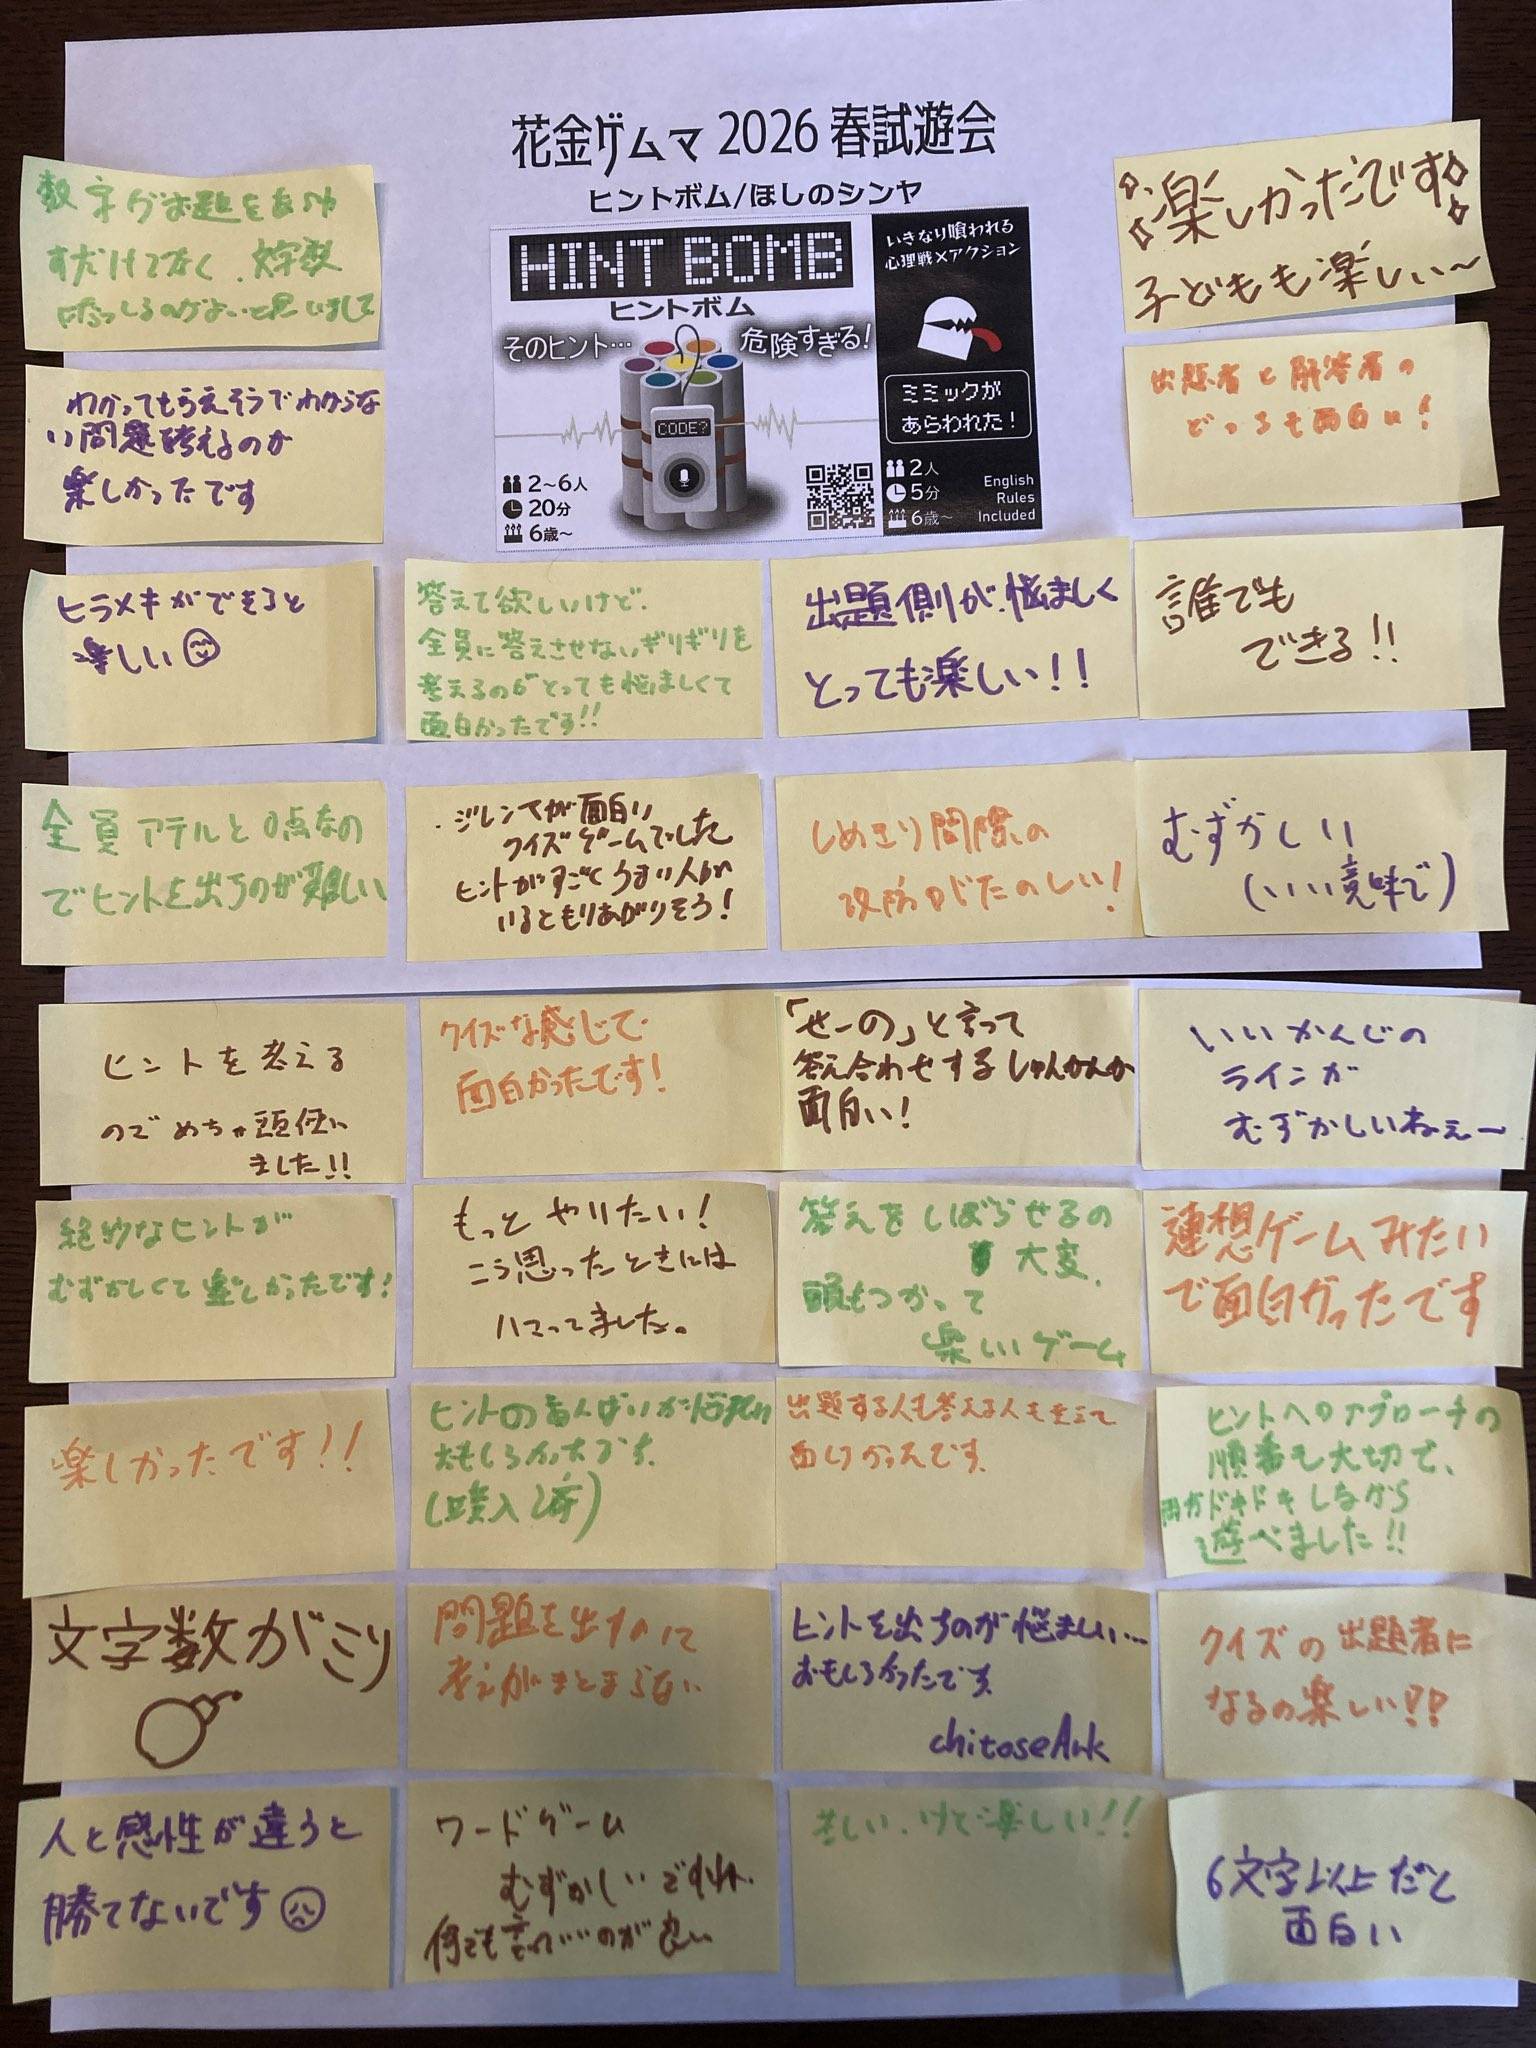 花金ゲムマ2026春試遊会
ヒントボム/ほしのシンヤ
HINT BOMB
ヒントボム
そのヒント…
危険すぎる!
CODE?
2～6人
20分
6歳～
いきなり喰われる
心理戦×アクション
ミミックが
あらわれた!
2人
5分
6歳～
English
Rules
Included
数字がお題を
すだけでなく、文字数
のがよいと思いまして
✧楽しかったです✧
子どもも楽しい～
わかってもらえそうでわからな
い問題を考えるのが
楽しかったです
出題者と解答者の
どっちも面白い!
ヒラメキができると
楽しい
答えて欲しいけど、
全員に答えさせないギリギリを
考えるのがとっても悩ましくて
面白かったです!!
出題側が、悩ましく
とっても楽しい!!
誰でも
できる!!
全員アテルと0点なの
でヒントを出すのが難しい
・ジレンマが面白い
クイズゲームでした
ヒントがすごくうまい人が
いるともりあがりそう!
しめきり間際の
攻防がたのしい!
むずかしい
(いい意味で)
ヒントを考える
のでめちゃ頭使い
ました!!
クイズな感じで
面白かったです!
「せーの」と言って
答え合わせするしゅんかんが
面白い!
いいかんじの
ラインが
むずかしいねぇー
絶妙なヒントが
むずかしくて楽しかったです!
もっとやりたい!
こう思ったときには
ハマってました。
答えをしぼらせるの
大変、
頭もつかって
楽しいゲーム
連想ゲームみたい
で面白かったです
楽しかったです!!
ヒントのあんばいが悩ましい
おもしろかったです。
出題する人も答える人も
面白かったです。
ヒントへのアプローチの
順番も大切で、
両方ドキドキしながら
遊べました!!
文字数がミソ
問題を出すのって
考えがまとまらない
ヒントを出すのが悩ましい…
おもしろかったです。
chitoseArk
クイズの出題者に
なるの楽しい!?
人と感性が違うと
勝てないです
ワードゲーム
むずかしいですね、
何でも言っていいのが良い
苦しい、けど楽しい!!
6文字以上だと
面白い